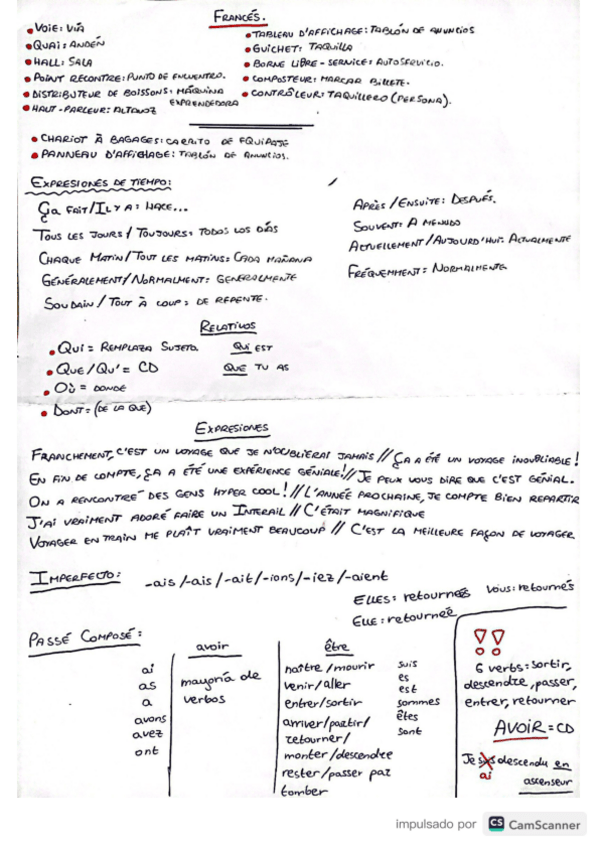 FRANCÉS.
• VOIE: VÍA
• QUAI: ANDÉN
• HALL: SALA
• POINT RECONTRE: PUNTO DE ENCUENTRO.
• DISTRIBUTEUR DE BOISSONS: MÁQUINA EXPRENDEDORA
• HAUT-PARLEUR: ALTAVOZ
• TABLEAU D'AFFICHAGE: TABLÓN DE ANUNCIOS
• GUICHET: TAQUILLA
• BORNE LIBRE-SERVICE: AUTOSERVICIO.
• COMPOSTEUR: MARCAR BILLETE.
• CONTRÔLEUR: TAQUILLERO (PERSONA).
• CHARIOT À BAGAGES: CARRITO DE EQUIPAJE
• PANNEAU D'AFFICHAGE: TABLÓN DE ANUNCIOS.
EXPRESIONES DE TIEMPO:
ÇA FAIT/IL Y A: HACE...
TOUS LES JOURS/TOUJOURS: TODOS LOS DÍAS
CHAQUE MATIN/TOUT LES MATINS: CADA MAÑANA
GÉNÉRALEMENT/NORMALMENT: GENERALMENTE
SOUDAIN/TOUT À COUP: DE REPENTE.
APRÈS/ENSUITE: DESPUÉS.
SOUVENT: A MENUDO
ACTUELLEMENT/AUJOURD'HUI: ACTUALMENTE
FRÉQUEMMENT: NORMALMENTE
RELATIVOS
• QUI = REMPLAZA SUJETO QUI EST
• QUE/QU' = CD QUE TU AS
• OÙ = DONDE
• DONT = (DE LA QUE)
EXPRESIONES
FRANCHEMENT, C'EST UN VOYAGE QUE JE N'OUBLIERAI JAMAIS // ÇA A ÉTÉ UN VOYAGE INOUBLIABLE!
EN FIN DE COMPTE, ÇA A ÉTÉ UNE EXPÉRIENCE GÉNIALE! // JE PEUX VOUS DIRE QUE C'EST GÉNIAL.
ON A RENCONTRÉ DES GENS HYPER COOL! // L'ANNÉE PROCHAINE, JE COMPTE BIEN REPARTIR
J'AI VRAIMENT ADORÉ FAIRE UN INTERAIL // C'ÉTAIT MAGNIFIQUE
VOYAGER EN TRAIN ME PLAÎT VRAIMENT BEAUCOUP // C'EST LA MEILLEURE FAÇON DE VOYAGER
IMPERFECTO: -ais/-ais/-ait/-ions/-iez/-aient
ELLES: retournées VOUS: retournés
ELLE: retournée
PASSÉ COMPOSÉ:
ai
as
a
avons
avez
ont
avoir
mayoría de
verbos
être
naître/mourir
venir/aller
entrer/sortir
arriver/partir/
retourner/
monter/descendre
rester/passer par
tomber
suis
es
est
sommes
êtes
sont
!!
6 verbs: sortir,
descendre, passer,
entrer, retourner
AVOIR = CD
Je sus descendu en
ai ascenseur
impulsado por CS CamScanner